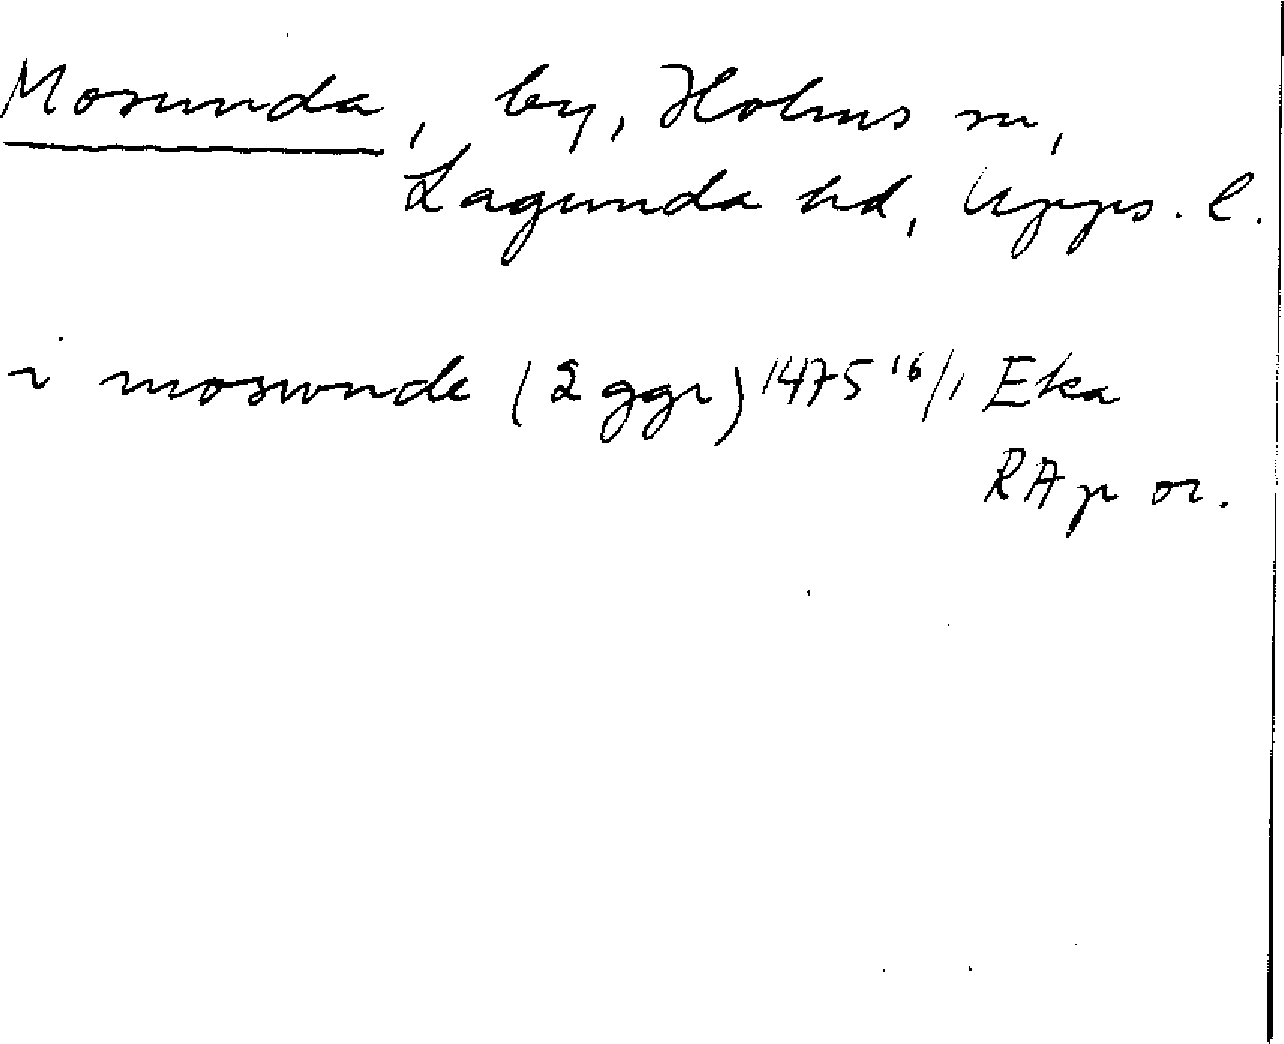 Mosunda, by, Holms sn,
Lagunda hd, Upps. l.
i moswnde (2 ggr) 1475 16/1 Eka
RAp or.